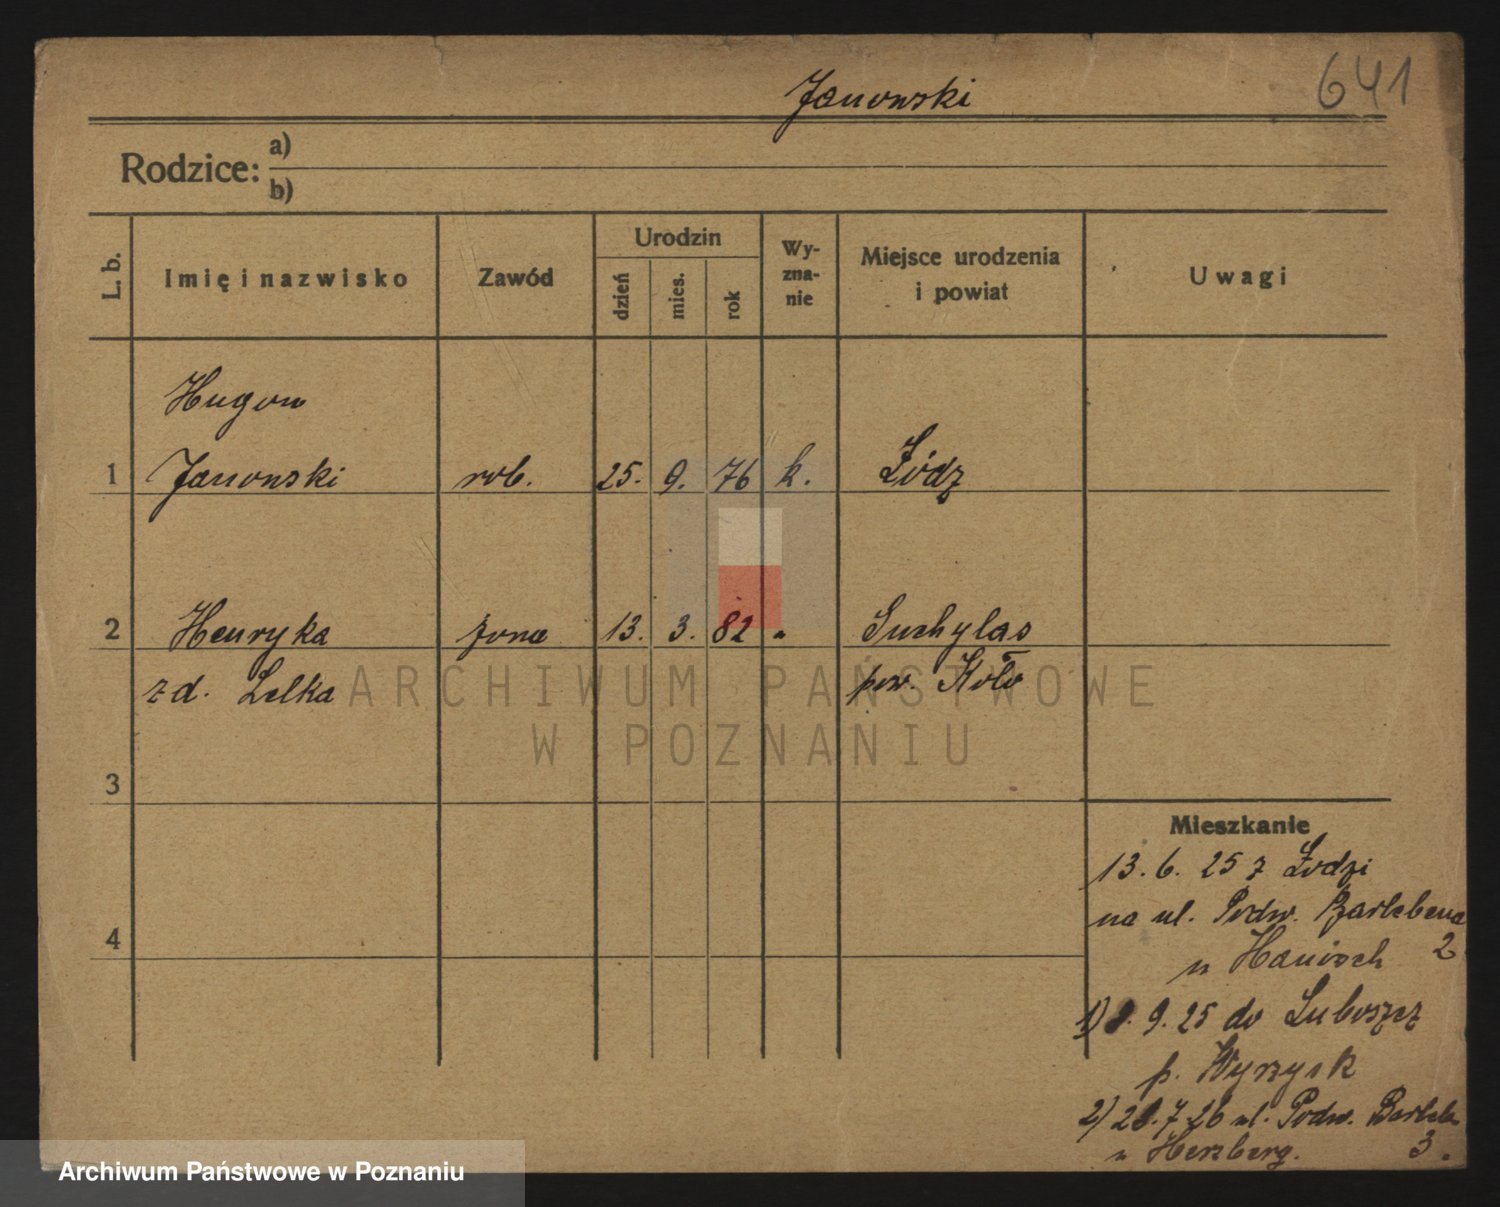 641
Janowski
Rodzice: a)
b)
L. b. Imię i nazwisko Zawód Urodzin dzień mies. rok Wy-zna-nie Miejsce urodzenia i powiat Uwagi
Hugon
1 Janowski rob. 25. 9. 76 k. Łódz
2 Henryka żona 13. 3. 82 " Suchylas
z d. Lelka pow. Koło
ARCHIWUM PAŃSTWOWE
W POZNANIU
3
Mieszkanie
13. 6. 25 z Łodzi
na ul. Podw.
4
u Hanisch 2
1) 9. 25 do
p. Wyrzysk
2) 7. 26 ul. Podw.
u Herzberg. 3.
Archiwum Państwowe w Poznaniu